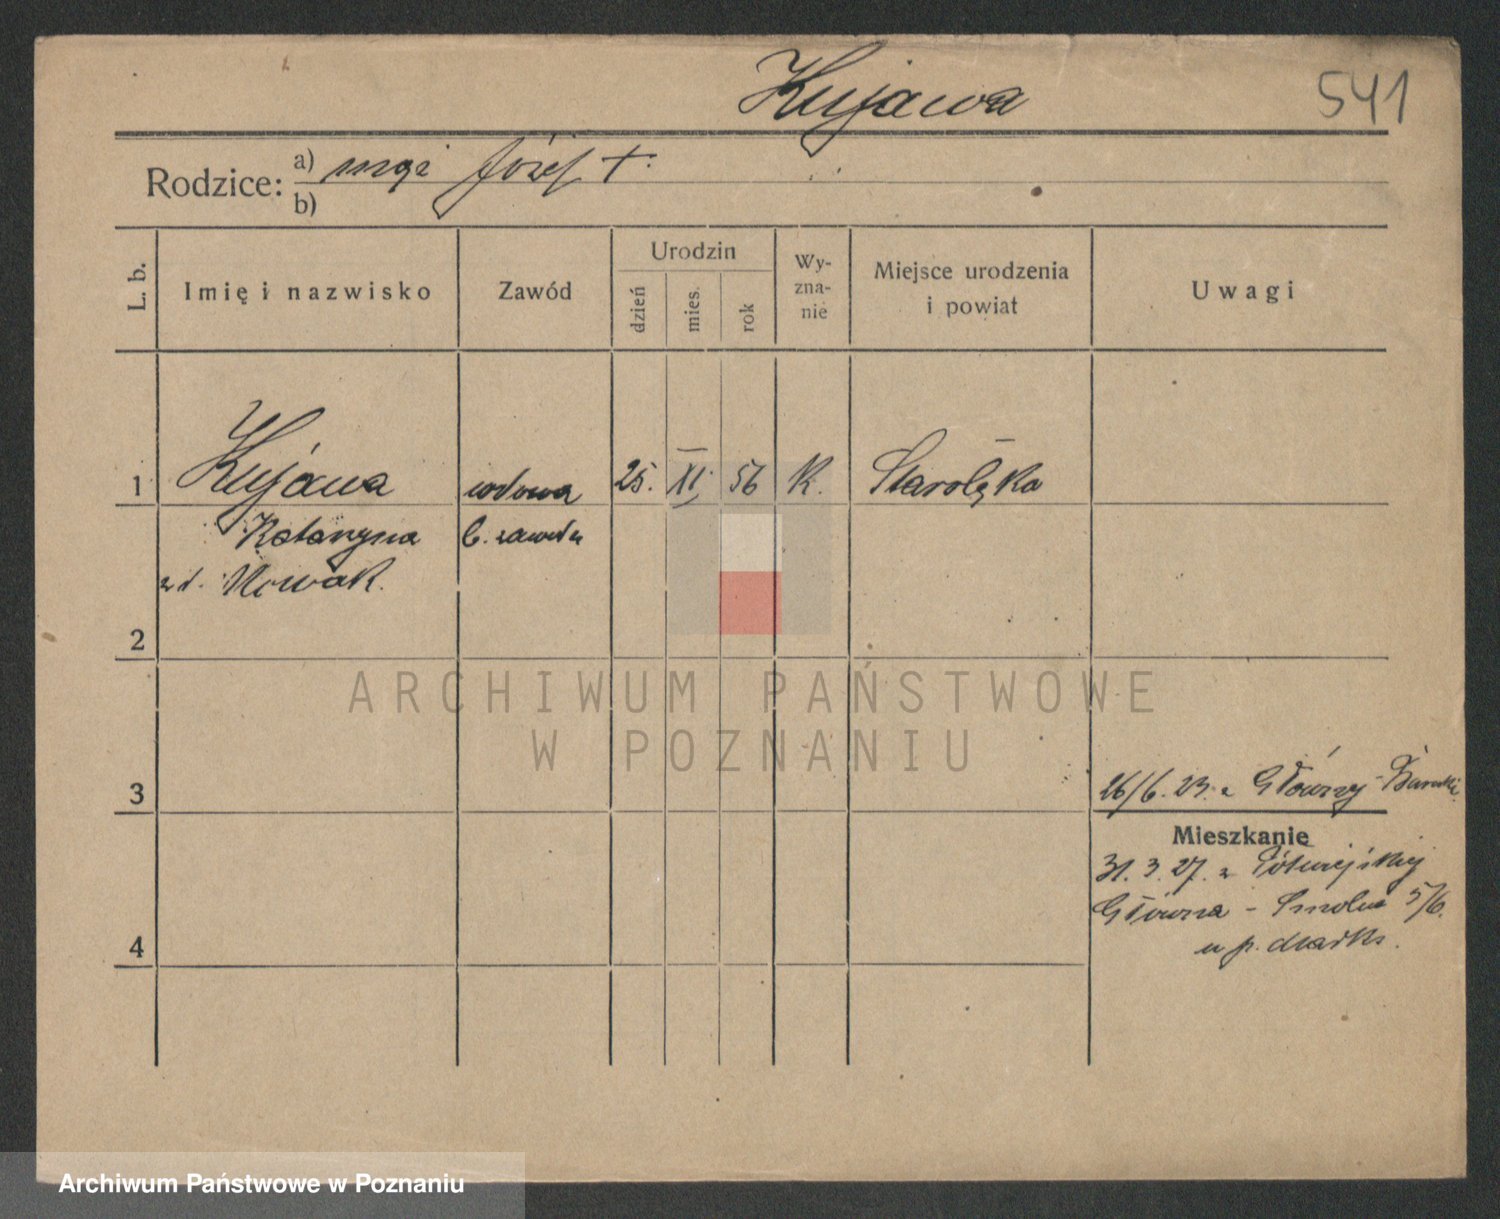 Kujawa
541
Rodzice: a) mąż Józef +.
b)
L. b.
Imię i nazwisko
Zawód
Urodzin
dzień
mies.
rok
Wy-
zna-
nie
Miejsce urodzenia
i powiat
Uwagi
1 Kujawa wdowa 25. XI. 56 K. Starołęka
Katarzyna b. zawodu
z d. Nowak.
2
ARCHIWUM PAŃSTWOWE
W POZNANIU
3
26/6. 23. z Główny-
Mieszkanie
31. 3. 27. z Główna - Smolna 5/6.
u p.
4
Archiwum Państwowe w Poznaniu